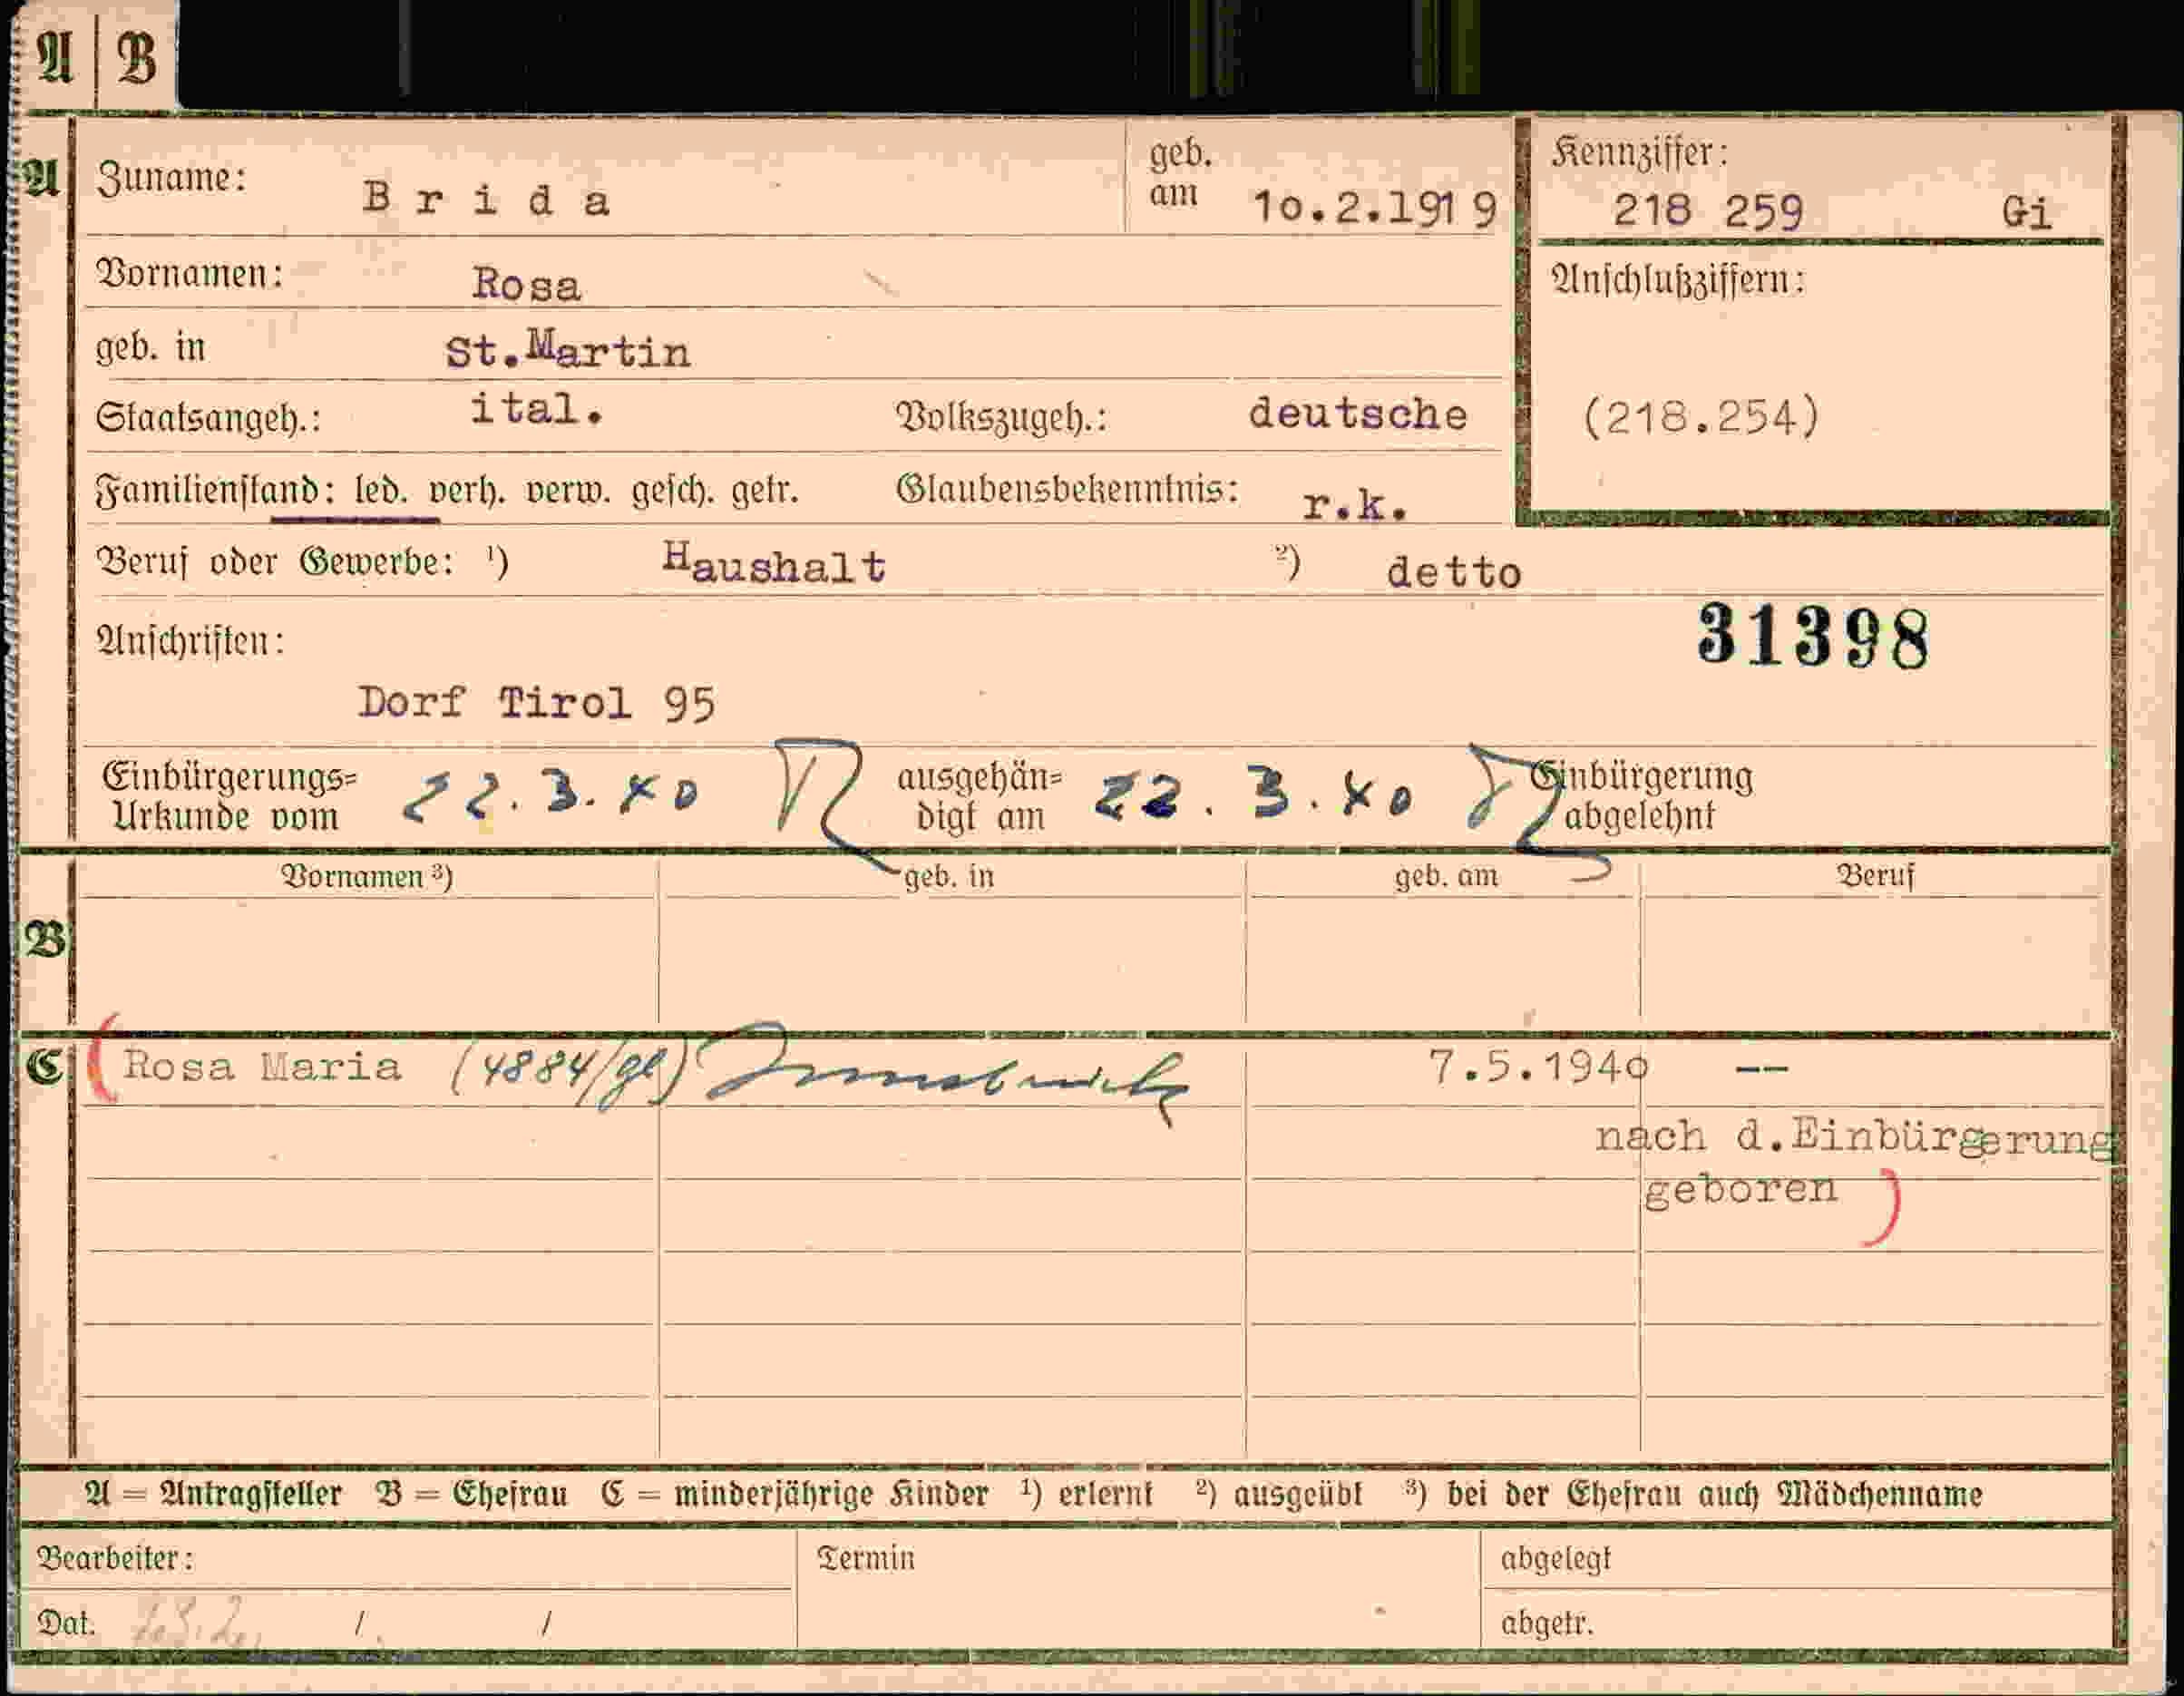 A B
A Zuname: Brida geb. am 10.2.1919 Kennziffer: 218 259 Gi
Vornamen: Rosa Anschlußziffern:
geb. in St.Martin
Staatsangeh.: ital. Volkszugeh.: deutsche (218.254)
Familienstand: led. verh. verw. gesch. getr. Glaubensbekenntnis: r.k.
Beruf oder Gewerbe: ¹) Haushalt ²) detto
Anschriften: 31398
Dorf Tirol 95
Einbürgerungs= Urkunde vom 22.3.40 ausgehän= digt am 22.3.40 Einbürgerung abgelehnt
Vornamen ³) geb. in geb. am Beruf
B
C (Rosa Maria (4884/gl) Innsbruck 7.5.1940 --
nach d.Einbürgerung
geboren )
A = Antragsteller B = Ehefrau C = minderjährige Kinder ¹) erlernt ²) ausgeübt ³) bei der Ehefrau auch Mädchenname
Bearbeiter: Termin abgelegt
Dat. / / abgetr.